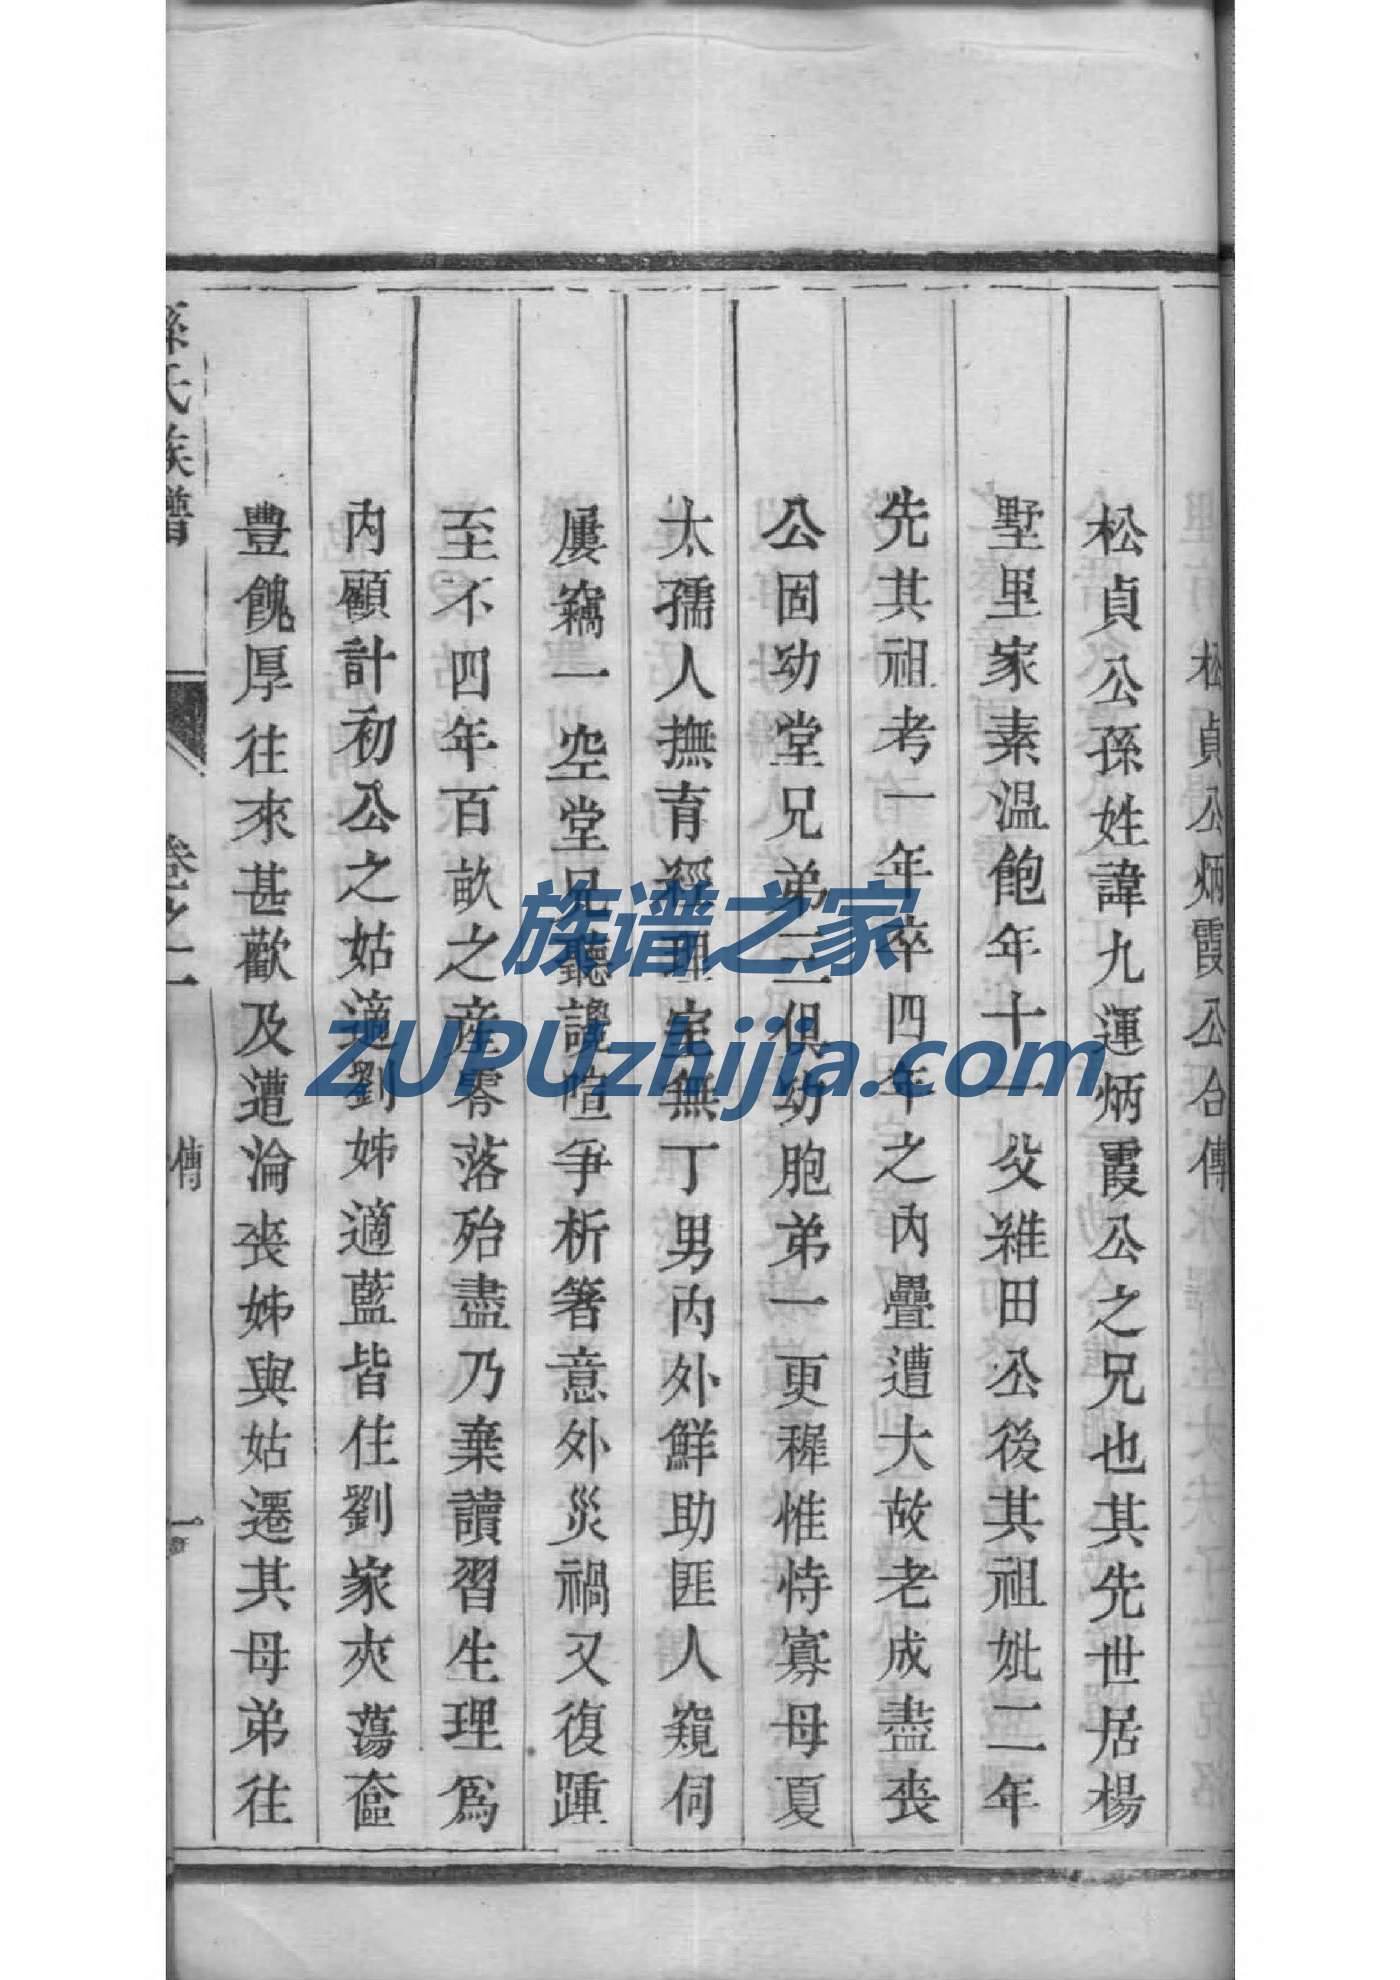 松貞公炳霞公合傳
松貞公孫姓諱九運炳霞公之兄也其先世居楊
墅里家素温飽年十一父維田公後其祖妣二年
先其祖考一年卒四年之內疊遭大故老成盡喪
公固幼堂兄弟三俱幼胞弟一更穉惟恃寡母夏
太孺人撫育經理室無丁男內外鮮助匪人窺伺
屢竊一空堂兄聽讒喧爭析箸意外災禍又復踵
至不四年百畝之產零落殆盡乃棄讀習生理為
內顧計初公之姑適劉姊適藍皆住劉家夾蕩奩
豐餽厚往來甚歡及遭淪喪姊與姑遷其母弟往
孫氏族譜
卷之一
傳
一
族谱之家
ZUPUzhijia.com